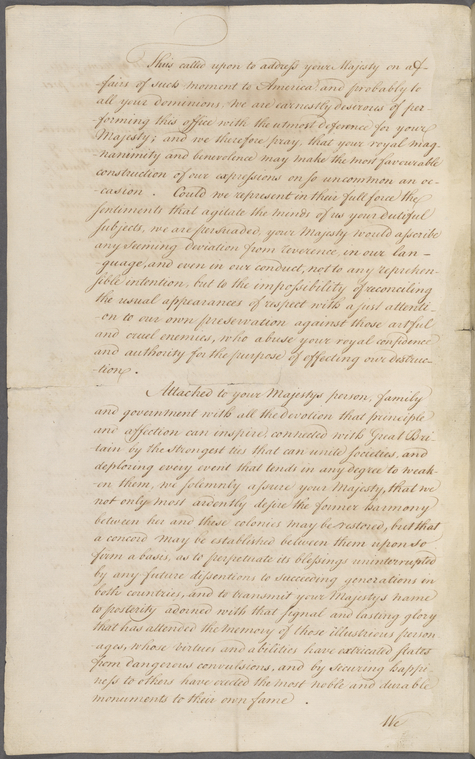 Thus called upon to address your Majesty on af-
-fairs of such moment to America, and probably to
all your dominions, we are earnestly desirous of per-
-forming this office with the utmost deference for your
Majesty; and we therefore pray, that your royal mag-
-nanimity and benevolence may make the most favourable
construction of our expressions on so uncommon an oc-
-casion. Could we represent in their full force the
sentiments that agitate the minds of us your dutiful
subjects, we are persuaded, your Majesty would ascribe
any seeming deviation from reverence, in our lan-
-guage, and even in our conduct, not to any reprehen-
-sible intention, but to the impossibility of reconciling
the usual appearances of respect with a just attenti-
-on to our own preservation against those artful
and cruel enemies, who abuse your royal confidence
and authority for the purpose of effecting our destruc-
-tion.
Attached to your Majestys person, family
and government with all the devotion that principle
and affection can inspire, connected with Great Bri-
-tain by the strongest ties that can unite societies, and
deploring every event that tends in any degree to weak-
-en them, we solemnly assure your Majesty, that we
not only most ardently desire the former harmony
between her and these colonies may be restored, but that
a concord may be established between them upon so
firm a basis, as to perpetuate its blessings uninterrupted
by any future dissentions to succeeding generations in
both countries, and to transmit your Majestys name
to posterity adorned with that signal and lasting glory
that has attended the memory of those illustrious person-
-ages, whose virtues and abilities have extricated states
from dangerous convulsions, and by securing happi-
-ness to others have erected the most noble and durable
monuments to their own fame.
We